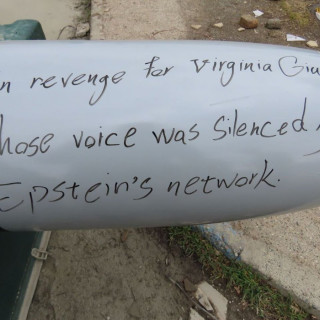 n revenge for Virginia Giu
hose voice was silenced
Epstein's network.